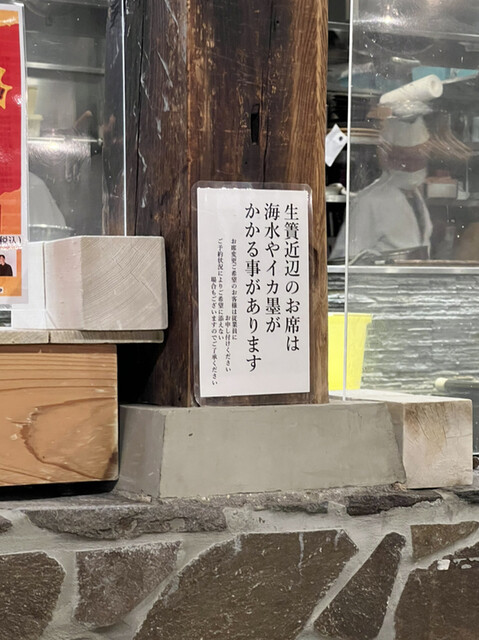 生簀近辺のお席は
海水やイカ墨が
かかる事があります
お席変更ご希望のお客様は従業員に
お申し付けください
ご予約状況によりご希望に添えない
場合もございますのでご了承ください